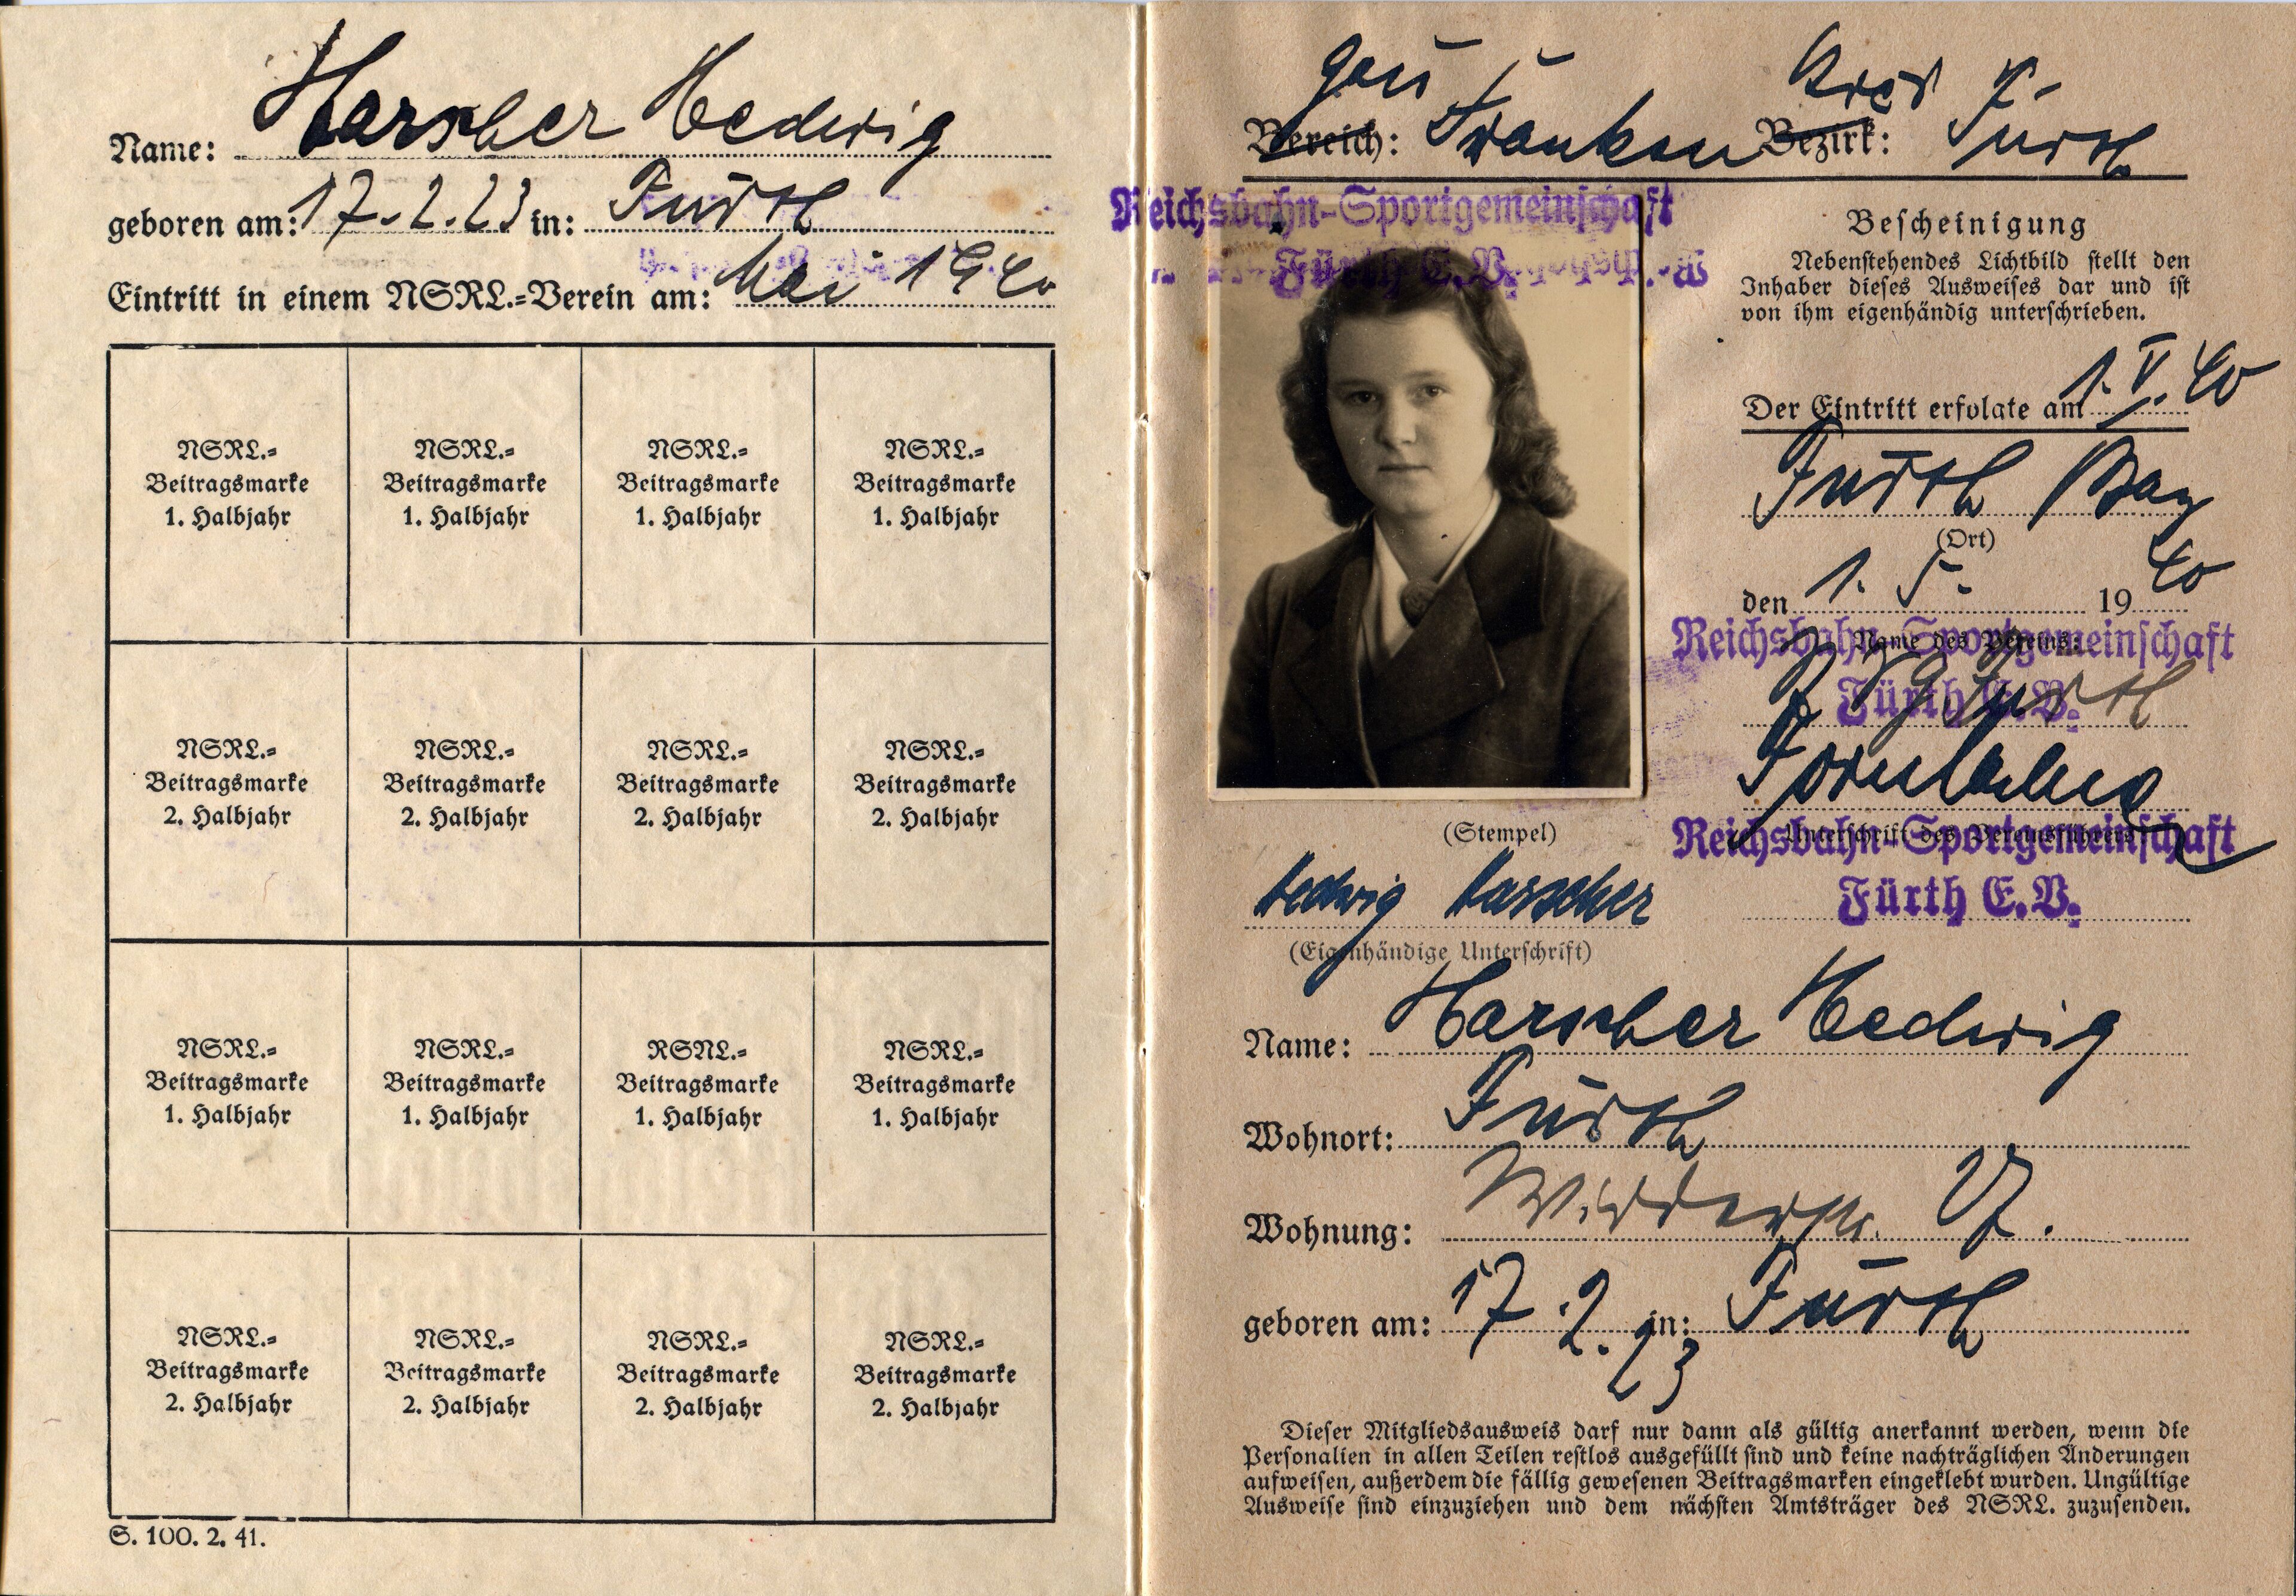 Name: Harscher Hedwig
geboren am: 17.2.23 in: Fürth
Eintritt in einem NSRL.=Verein am: Mai 1940
NSRL.= NSRL.= NSRL.= NSRL.=
Beitragsmarke Beitragsmarke Beitragsmarke Beitragsmarke
1. Halbjahr 1. Halbjahr 1. Halbjahr 1. Halbjahr
NSRL.= NSRL.= NSRL.= NSRL.=
Beitragsmarke Beitragsmarke Beitragsmarke Beitragsmarke
2. Halbjahr 2. Halbjahr 2. Halbjahr 2. Halbjahr
NSRL.= NSRL.= RSNL.= NSRL.=
Beitragsmarke Beitragsmarke Beitragsmarke Beitragsmarke
1. Halbjahr 1. Halbjahr 1. Halbjahr 1. Halbjahr
NSRL.= NSRL.= NSRL.= NSRL.=
Beitragsmarke Beitragsmarke Beitragsmarke Beitragsmarke
2. Halbjahr 2. Halbjahr 2. Halbjahr 2. Halbjahr
S. 100. 2. 41.
Gau Kreis F.
Bereich: Franken Bezirk: Fürth
Reichsbahn-Sportgemeinschaft
Fürth E.V.
Bescheinigung
Nebenstehendes Lichtbild stellt den
Inhaber dieses Ausweises dar und ist
von ihm eigenhändig unterschrieben.
Der Eintritt erfolgte am 1. V. 40
Fürth Bay
(Ort)
den 1. 5. 1940
Name des Vereins:
Reichsbahn-Sportgemeinschaft
Fürth E.V.
Fürth
Unterschrift des Vereinsführers
Reichsbahn-Sportgemeinschaft
Fürth E.V.
(Stempel)
Hedwig Harscher
(Eigenhändige Unterschrift)
Name: Harscher Hedwig
Wohnort: Fürth
Wohnung: 17.
geboren am: 17.2.23 in: Fürth
Dieser Mitgliedsausweis darf nur dann als gültig anerkannt werden, wenn die
Personalien in allen Teilen restlos ausgefüllt sind und keine nachträglichen Änderungen
aufweisen, außerdem die fällig gewesenen Beitragsmarken eingeklebt wurden. Ungültige
Ausweise sind einzuziehen und dem nächsten Amtsträger des NSRL. zuzusenden.